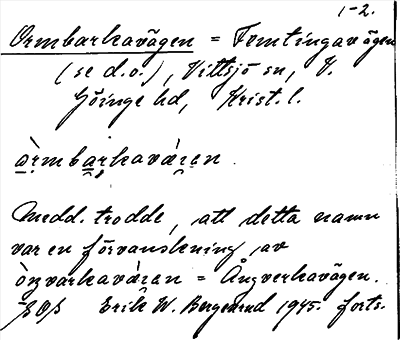 1-2.
Ormbarkavägen = Femtingavägen
(se d.o.), Vittsjö sn, V.
Göinge hd, Krist. l.
òrmbarkavä̀ren.
Medd. trodde, att detta namn
var en förvanskning av
òŋvarkavä̀ren = Ångverkavägen.
Erik W. Bergenrud 1945. forts.